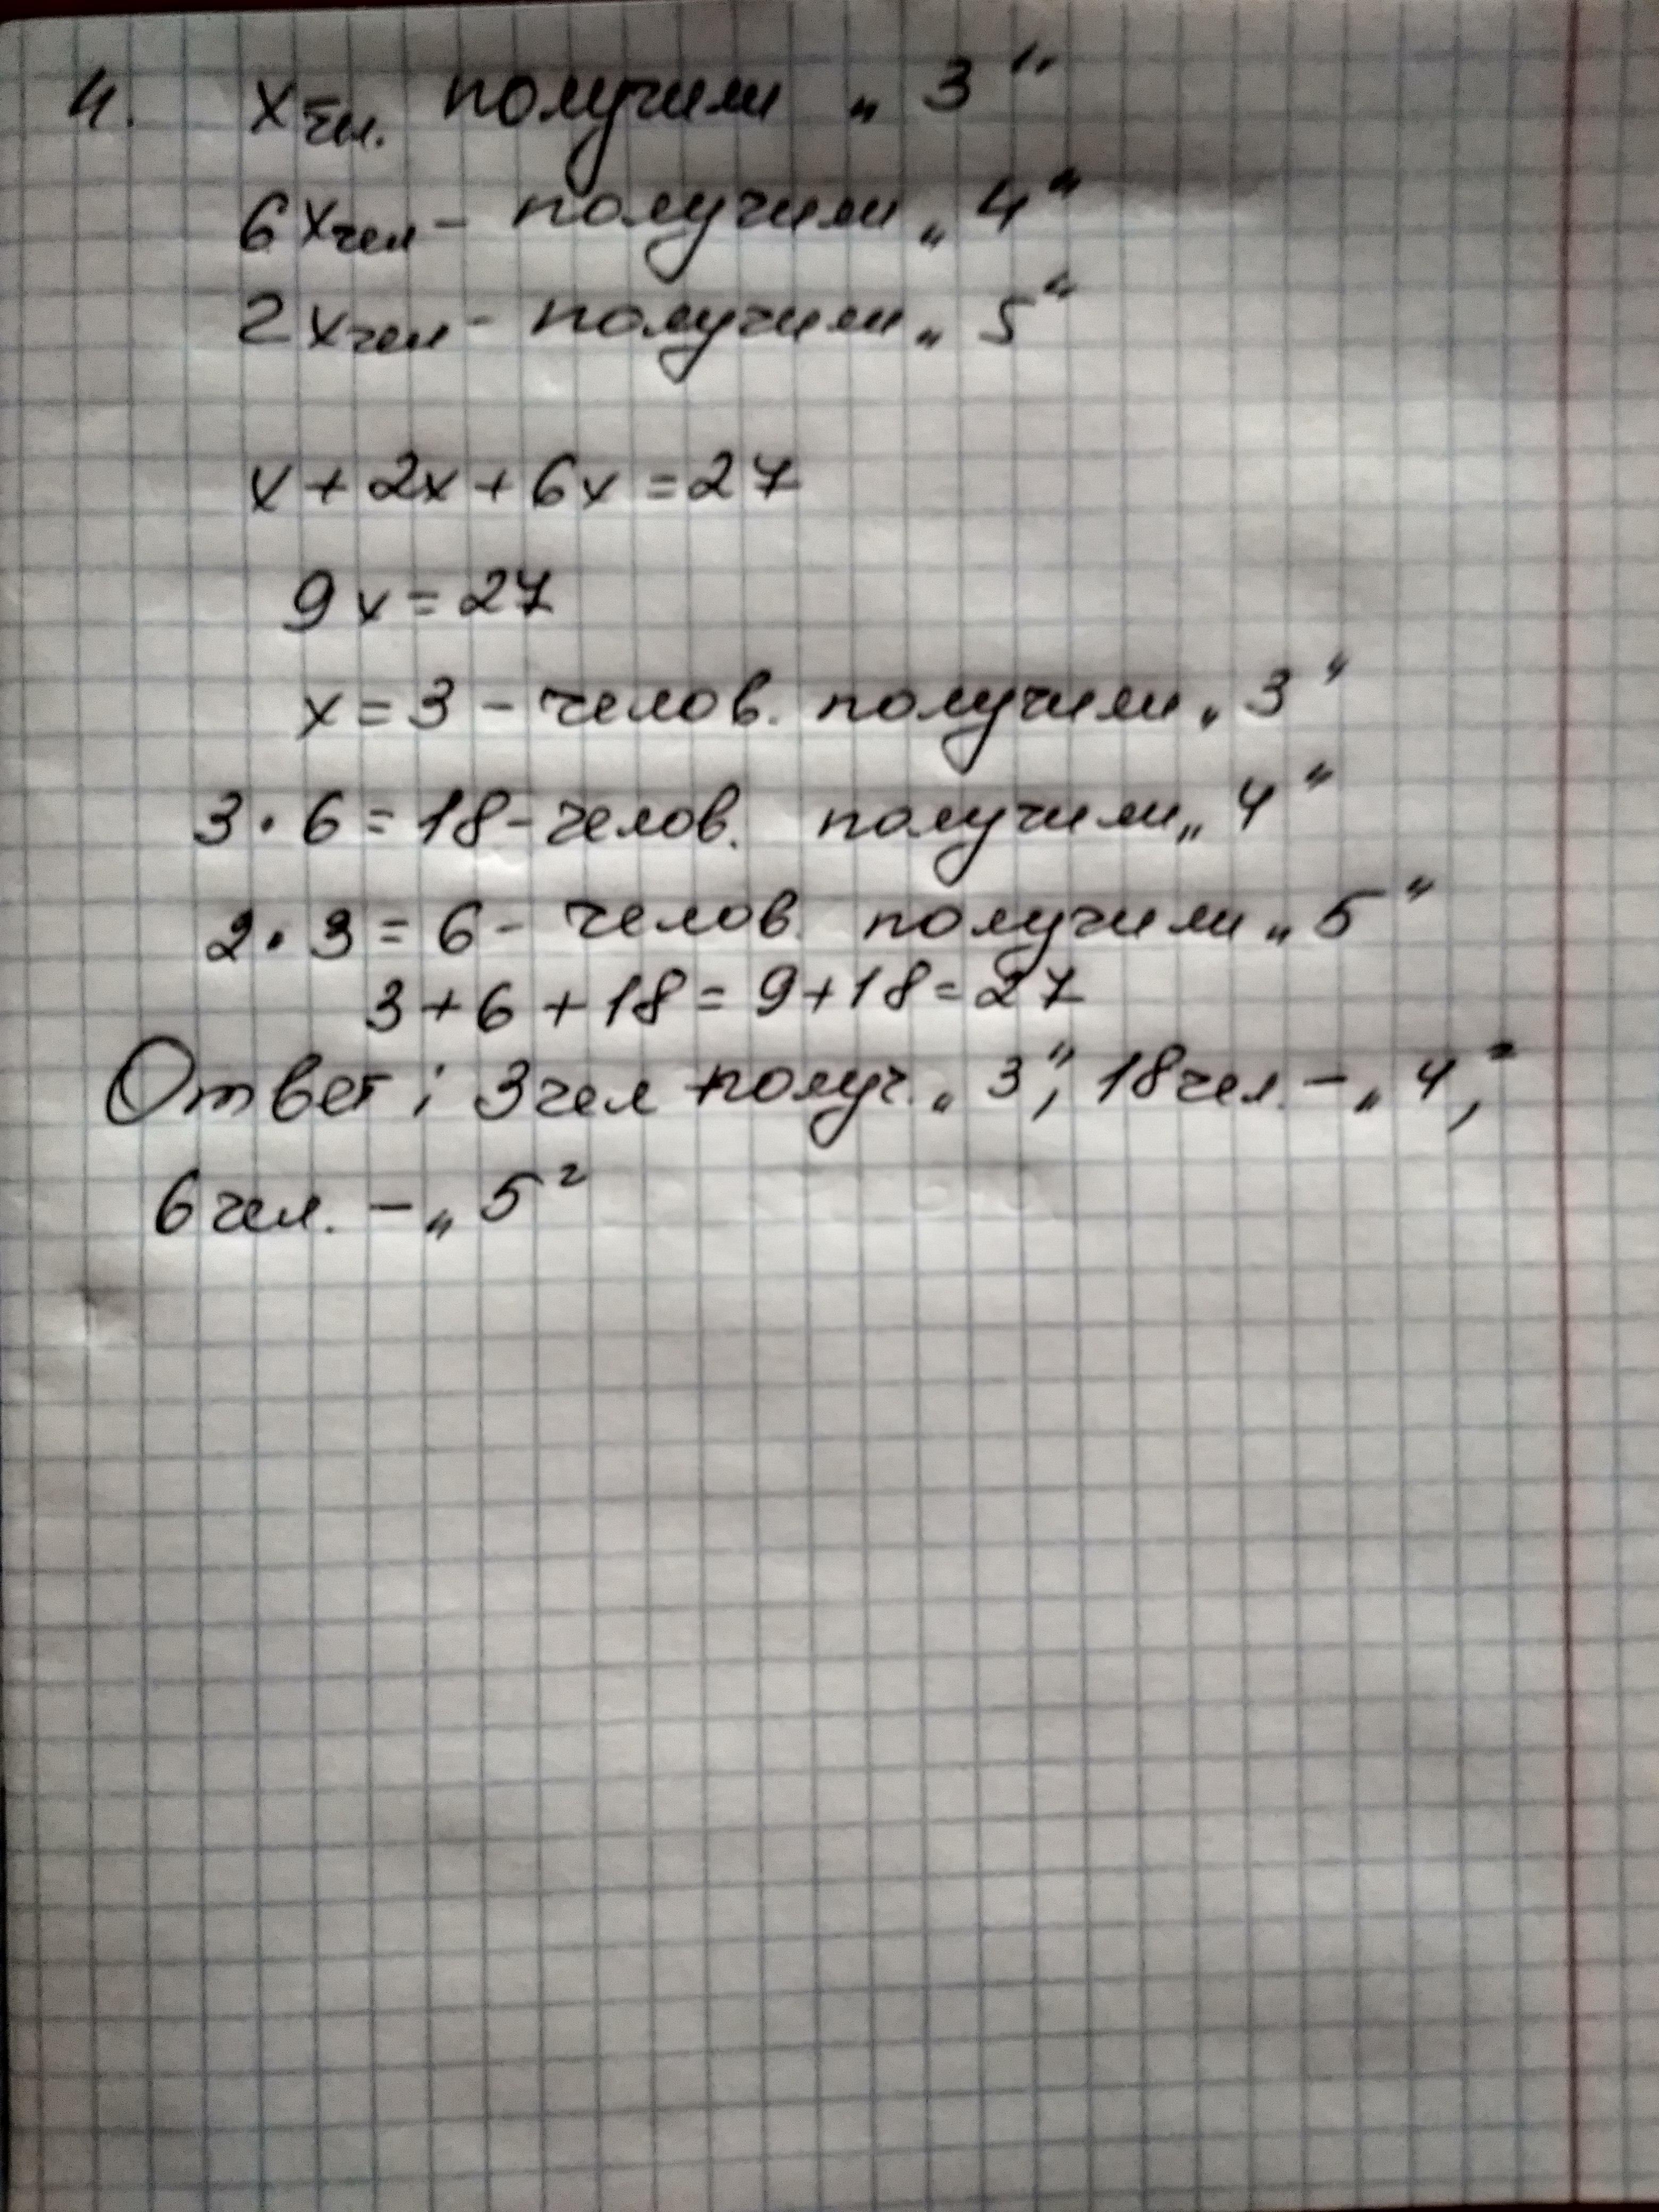 4. x чел. получили „3"
6x чел - получили „4"
2x чел - получили „5"
x + 2x + 6x = 27
9x = 27
x = 3 - челов. получили „3"
3 · 6 = 18 - челов. получили „4"
2 · 3 = 6 - челов. получили „5"
3 + 6 + 18 = 9 + 18 = 27
Ответ: 3 чел получ. „3", 18 чел. - „4",
6 чел. - „5"